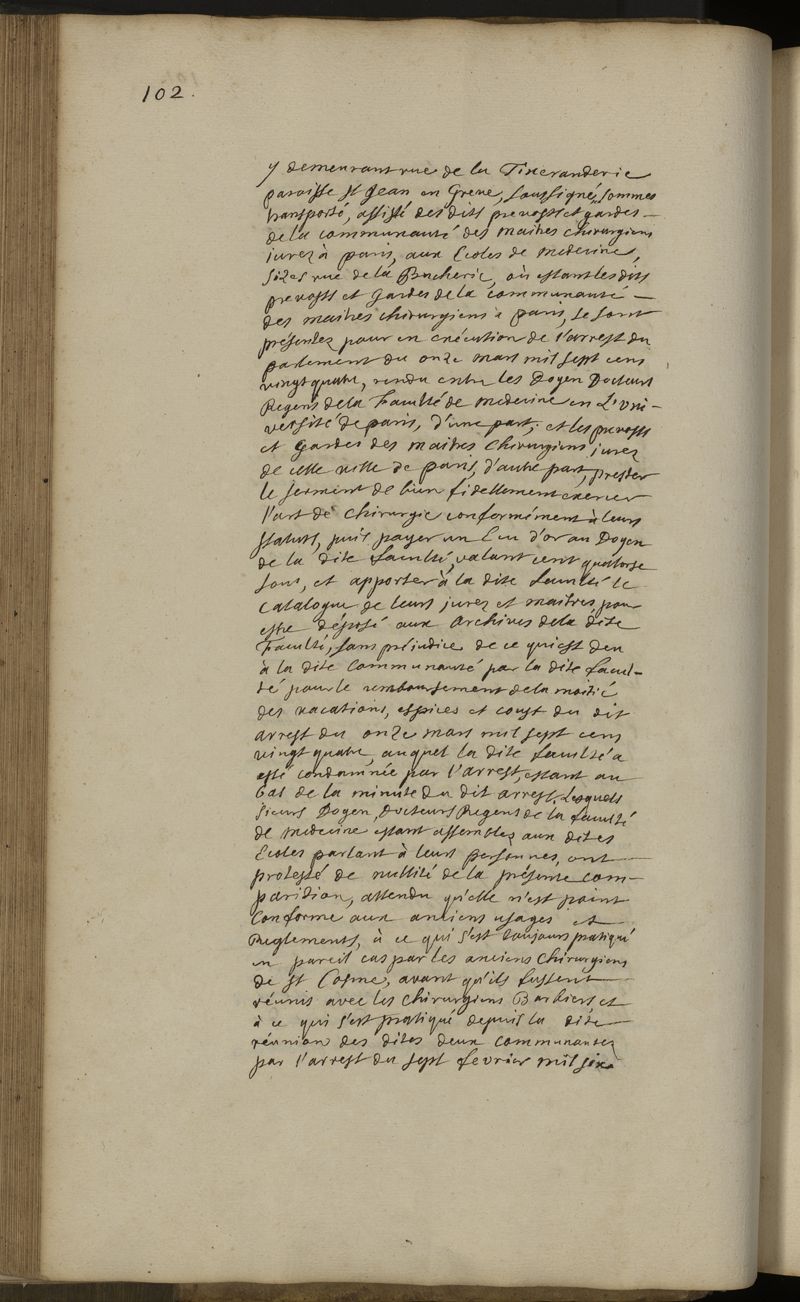 102.
y demeurant rue de la Tixeranderie
paroisse st Jean en Greve, soussigné, sommes
transporté, assisté desdits prevosts et gardes —
de la communauté des maitres chirurgiens
jurez à paris, aux Ecoles de medecine,
sizes rue de la Bucherie, où estant lesdits
prevosts et gardes de la communauté —
des maitres chirurgiens a paris, se sont
présentez pour en exécution de l'arrest du
parlement du onze mars mil sept cens
vingt quatre, rendu entre les Doyen Docteurs
Regens de la Faculté de medecine en L'uni-
versité de paris, d'une part; et les prevosts
et gardes des maitres chirurgiens jurez
de cette ville de paris, d'autre part, prester
le serment de bien fidellement exercer
l'art de chirurgie conformément à leurs
statuts, puis payer un Ecu d'or au Doyen
de la dite faculté, valant cent quatorse
sous, et apporter à la dite faculté le
catalogue de leurs jurez et maitres, pour
estre déposé aux archives de la dite
Faculté, sans préjudice de ce qui est deu
à la dite Communauté par la dite facul-
té pour le remboursement de la moitié
des vacations, espices et coust du dit
arrest du onze mars mil sept cens
vingt quatre, auquel la dite faculté a
esté condamnée par l'arrest, estant au
bas de la minute du dit arrest, Lesquels
sieurs Doyen, Docteurs Regens de la faculté
de medecine estant assemblez aux dites
Ecoles parlant à leurs personnes, ont —
protesté de nullité de la présente com-
parition, attendu qu'elle n'est point
conforme aux anciens usages et —
Reglements, à ce qui s'est toujours pratiqué
en pareil cas par les anciens chirurgiens
de st Cosme, avant qu'ils fussent —
réunis avec les chirurgiens Barbiers et
à ce qui s'est pratiqué depuis la dite —
réunion des dites deux communautez
par l'arrest du sept fevrier mil six